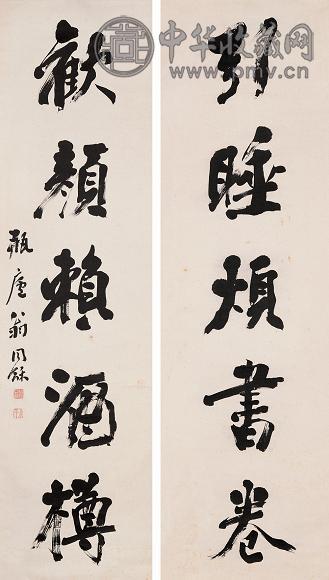 引睡煩書卷
歡顏賴酒樽
瓶廬翁同龢
中华收藏网
www.pmv.cn